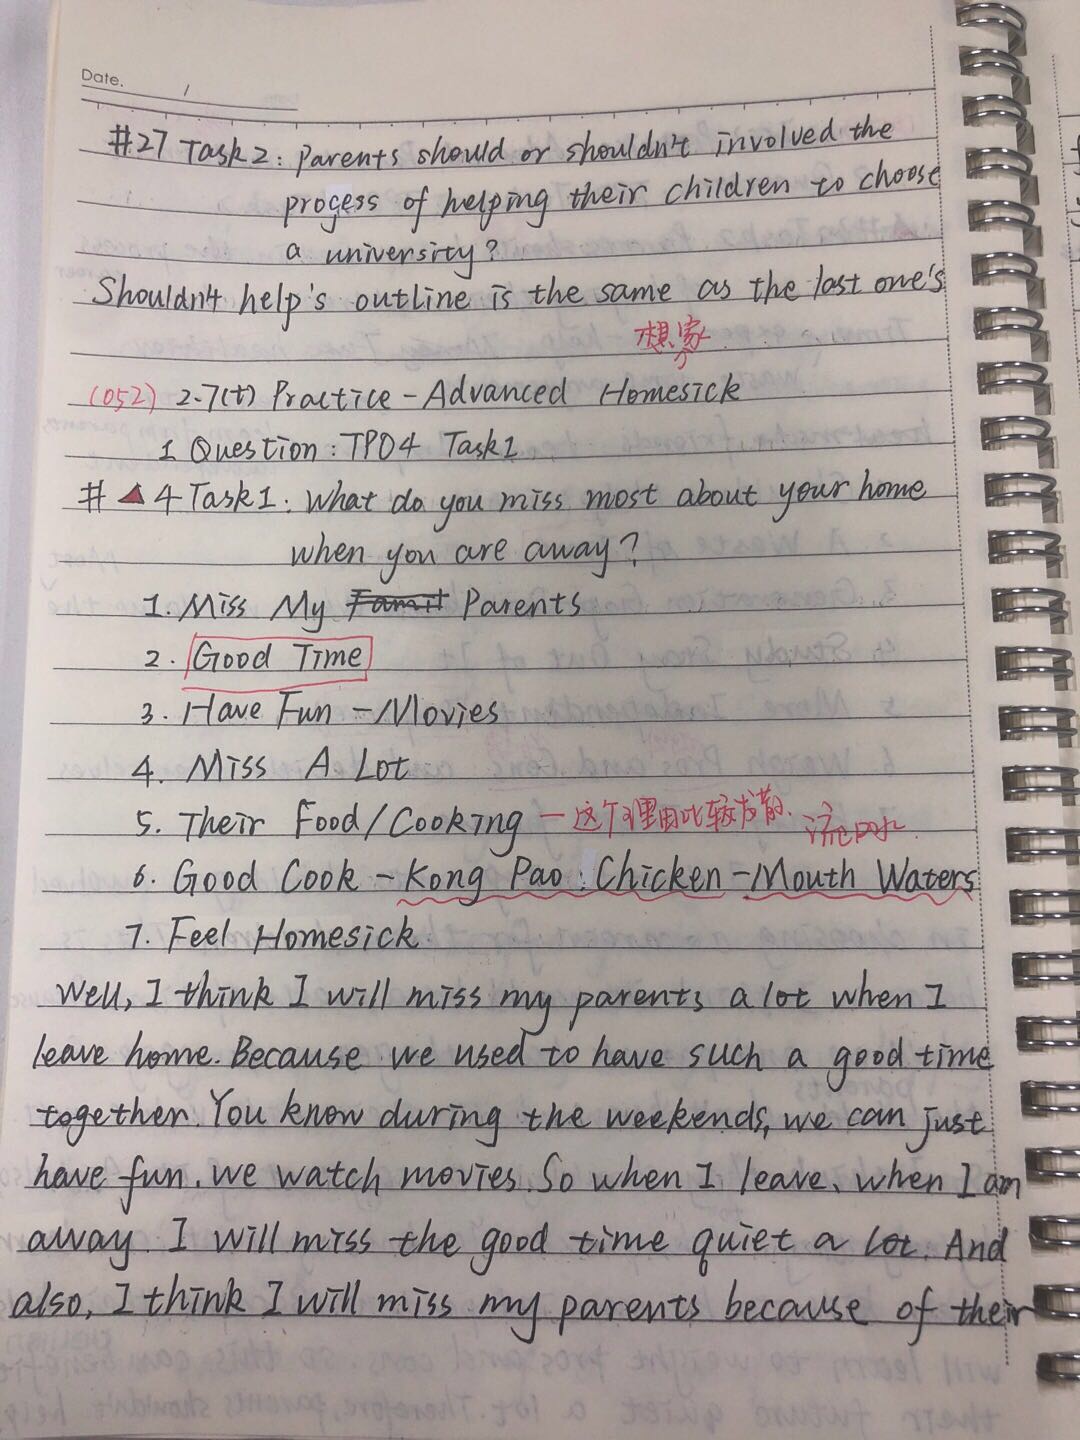 Date.
#27 Task2: Parents should or shouldn't involved the
progess of helping their children to choose
a university?
Shouldn't help's outline is the same as the last one's
想家
(052) 2.7(t) Practice-Advanced Homesick
1 Question: TPO4 Task1
# ▲4 Task1: What do you miss most about your home
when you are away?
1. Miss My Famil Parents
2. Good Time
3. Have Fun - Movies
4. Miss A Lot
5. Their Food/Cooking - 这个理由比较发散. 流口水
6. Good Cook - Kong Pao Chicken - Mouth Waters
7. Feel Homesick
Well, I think I will miss my parents a lot when I
leave home. Because we used to have such a good time
together. You know during the weekends, we can just
have fun. we watch movies. So when I leave, when I am
away. I will miss the good time quiet a lot. And
also, I think I will miss my parents because of their